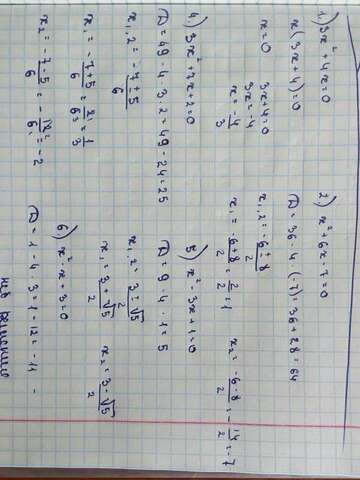 1) 3x²+4x=0
x(3x+4)=0
x=0   3x+4=0
3x=-4
x=-4/3
2) x²+6x-7=0
D=36-4·(-7)=36+28=64
x₁,₂=-6±8/2
x₁=-6+8/2=2/2=1   x₂=-6-8/2=-14/2=-7
4) 3x²+7x+2=0
D=49-4·3·2=49-24=25
x₁,₂=-7±5/6
x₁=-7+5/6 2¹/6₃=1/3
x₂=-7-5/6=-12²/6₁=-2
5) x²-3x+1=0
D=9-4·1=5
x₁,₂=3±√5/2
x₁=3+√5/2   x₂=3-√5/2
6) x²-x+3=0
D=1-4·3=1-12=-11 -
нет решений